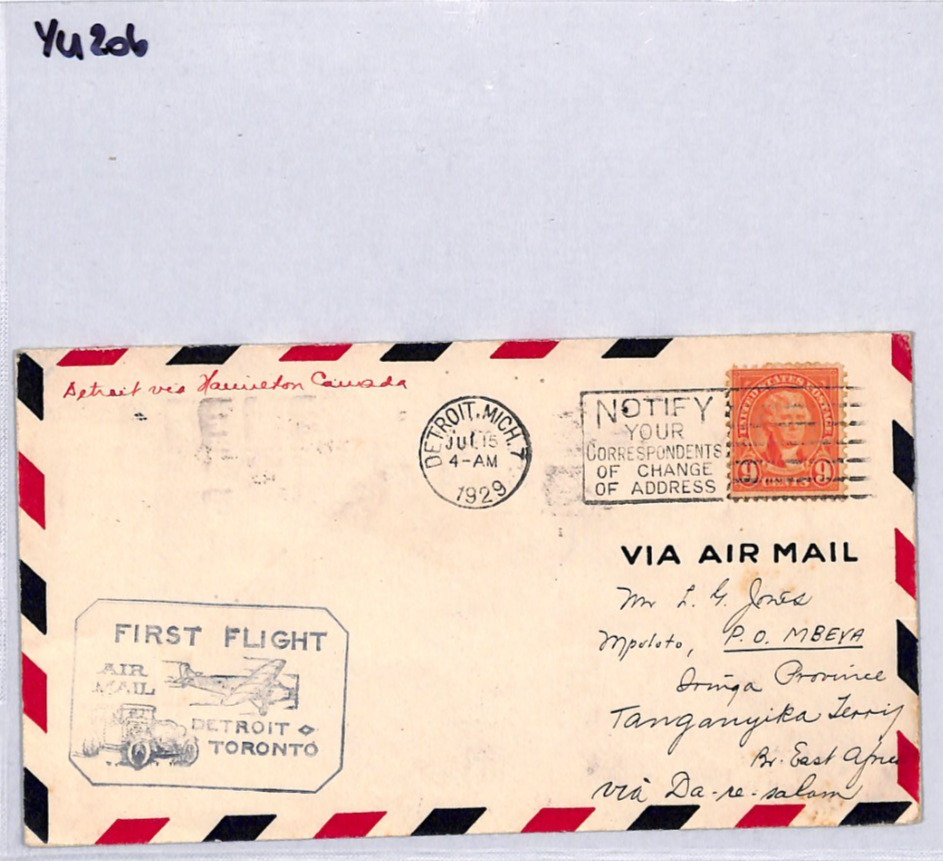 YU206
Detroit via Hamilton Canada
DETROIT, MICH. 7
JUL 15
4-AM
1929
NOTIFY
YOUR
CORRESPONDENTS
OF CHANGE
OF ADDRESS
UNITED STATES POSTAGE
9 9
CENTS
VIA AIR MAIL
Mr L. G. Jones
Mpoloto, P.O. MBEYA
Iringa Province
Tanganyika Terrij
Br. East Africa
via Da-re-salam
FIRST FLIGHT
AIR
MAIL
DETROIT
TORONTO